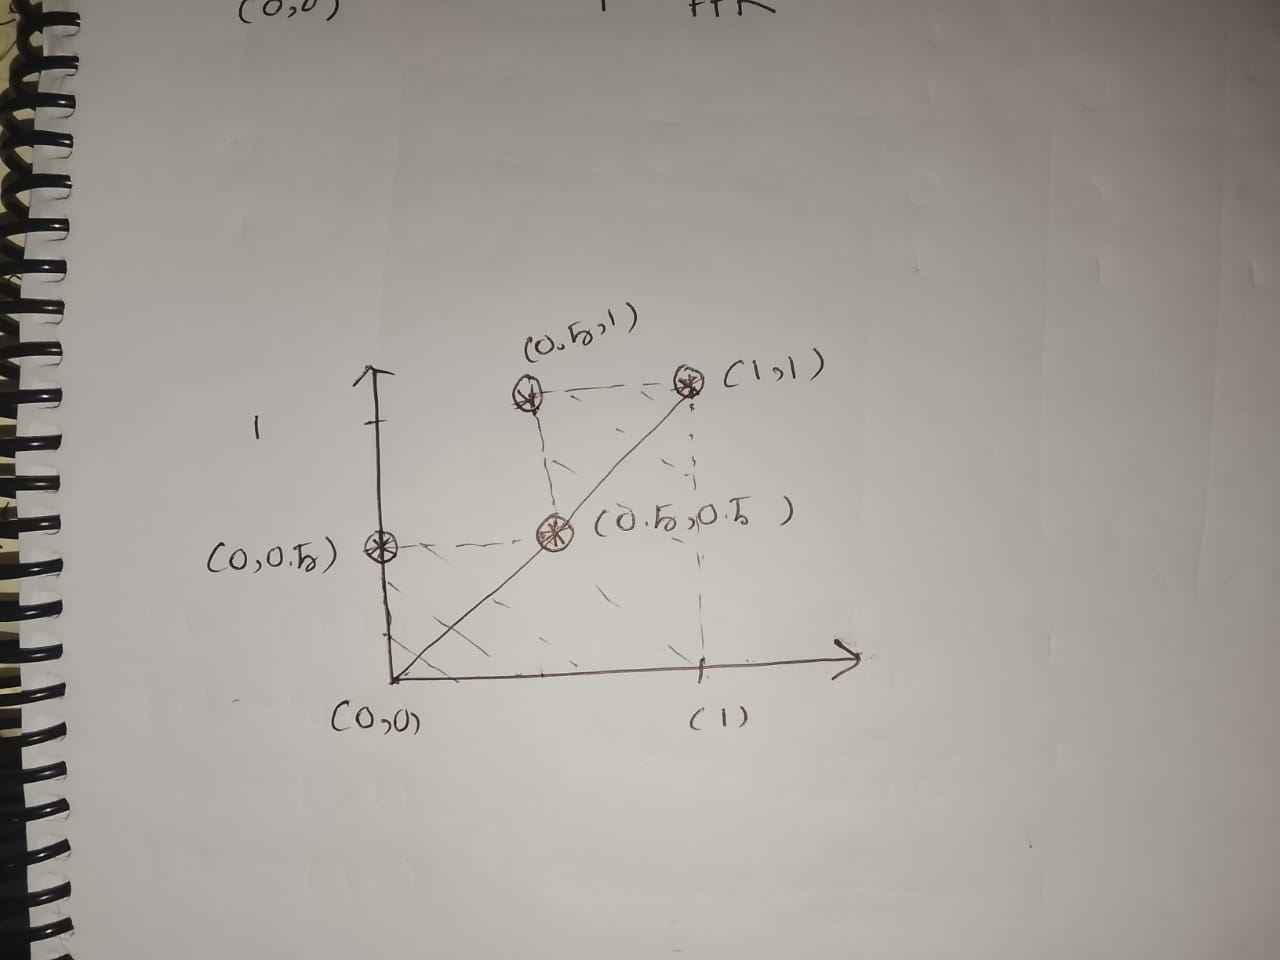 (0,0)
(0.5,1)
(1,1)
1
(0.5,0.5)
(0,0.5)
(0,0)
(1)